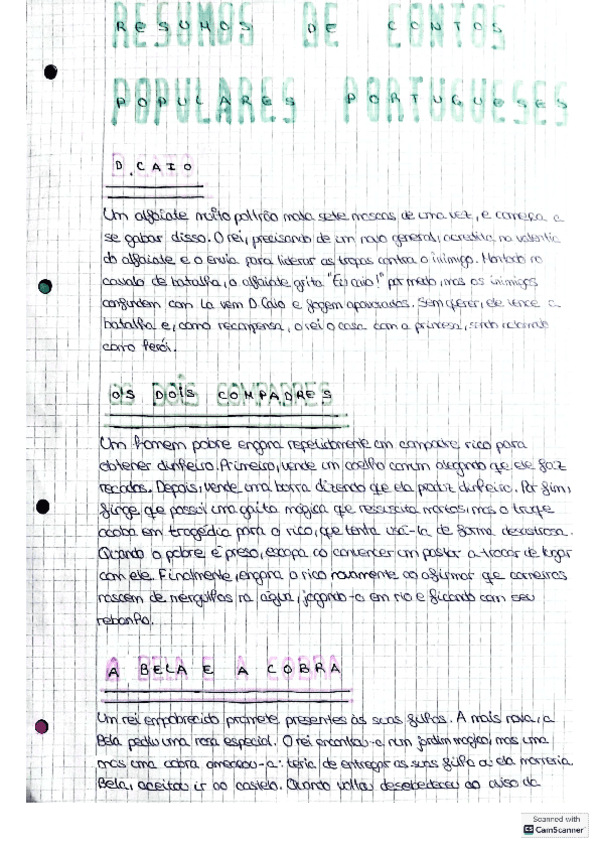 RESUMOS DE CONTOS
POPULARES PORTUGUESES
D. CAIO
Um alfaiate muito poltrão mata sete moscas de uma vez, e começa a
se gabar disso. O rei, precisando de um novo general, acredita na valentia
do alfaiate e o envia para liderar as tropas contra o inimigo. Montado no
cavalo de batalha, o alfaiate grita "Eu caio!" por medo, mas os inimigos
confundem com La vem D. Caio e fogem apavorados. Sem querer, ele vence a
batalha e, como recompensa, o rei o casa com a princesa, sendo
como herói.
OS DOIS COMPADRES
Um homem pobre engana repetidamente um compadre rico para
obtener dinheiro. Primeiro, vende um coelho comum alegando que ele faz
recados. Depois, vende uma burra dizendo que ela produz dinheiro. Por fim,
finge que possui uma gaita mágica que ressuscita mortos, mas o truque
acaba em tragédia para o rico, que tenta usá-la de forma desastrosa.
Quando o pobre é preso, escapa ao convencer um pastor a trocar de lugar
com ele. Finalmente, engana o rico novamente ao afirmar que carneiros
nascem de mergulhos na água, jogando-o em rio e ficando com seu
rebanho.
A BELA E A COBRA
Um rei empobrecido promete presentes às suas filhas. A mais nova, a
Bela pediu uma rosa especial. O rei encontrou-a num jardim mágico, mas uma
mas uma cobra ameaçou-a: teria de entregar as suas filha a ela morreria.
Bela, aceitou ir ao castelo. Quando voltou desobedeceu ao aviso da
Scanned with
CS CamScanner